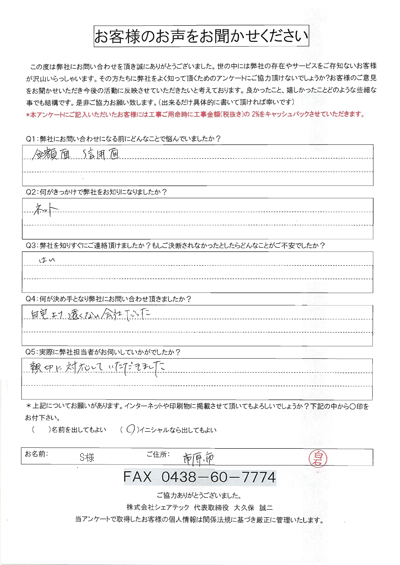 お客様のお声をお聞かせください
この度は弊社にお問い合わせを頂き誠にありがとうございました。世の中には弊社の存在やサービスをご存知ないお客様
が沢山いらっしゃいます。その方たちに弊社をよく知って頂くためのアンケートにご協力頂けないでしょうか?お客様のご意見
をお聞かせいただき今後の活動に反映させていただきたいと考えております。良かったこと、嬉しかったことどのような些細な
事でも結構です。是非ご協力お願い致します。(出来るだけ具体的に書いて頂ければ幸いです)
*本アンケートにご記入いただいたお客様には工事ご用命時に工事金額(税抜き)の2%をキャッシュバックさせていただきます。
Q1:弊社にお問い合わせになる前にどんなことで悩んでいましたか?
金額面 信用面
Q2:何がきっかけで弊社をお知りになりましたか?
ネット
Q3:弊社を知りすぐにご連絡頂けましたか?もしご決断されなかったとしたらどんなことがご不安でしたか?
はい
Q4:何が決め手となり弊社にお問い合わせ頂きましたか?
自宅より遠くない会社でした
Q5:実際に弊社担当者がお伺いしていかがでしたか?
親切に対応していただきました
*上記についてお願いがあります。インターネットや印刷物に掲載させて頂いてもよろしいでしょうか?下記の中から〇印を
お付下さい。
( )名前を出してもよい (〇)イニシャルなら出してもよい
お名前: S様 ご住所: 市原市 白石
FAX 0438-60-7774
ご協力ありがとうございました。
株式会社シェアテック 代表取締役 大久保 誠二
当アンケートで取得したお客様の個人情報は関係法規に基づき厳正に管理いたします。